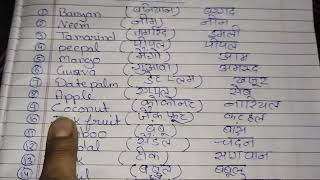 ① Banyan (बनियान) बरगद
② Neem (नीम) नीम
③ Tamarind (टैमरिंड) इमली
④ peepal (पीपल) पीपल
⑤ Mango (मैंगो) आम
⑥ Guava (गुआवा) अमरूद
⑦ Date palm (डेट प्लम) खजूर
⑧ Apple (एप्पल) सेब
Coconut (कोकोनट) नारियल
fruit (जैक फ्रूट) कटहल
boo (बंबू) बांस
dal (सैंडल) चन्दन
(टीक) सागवान
(बबूल) बबूल